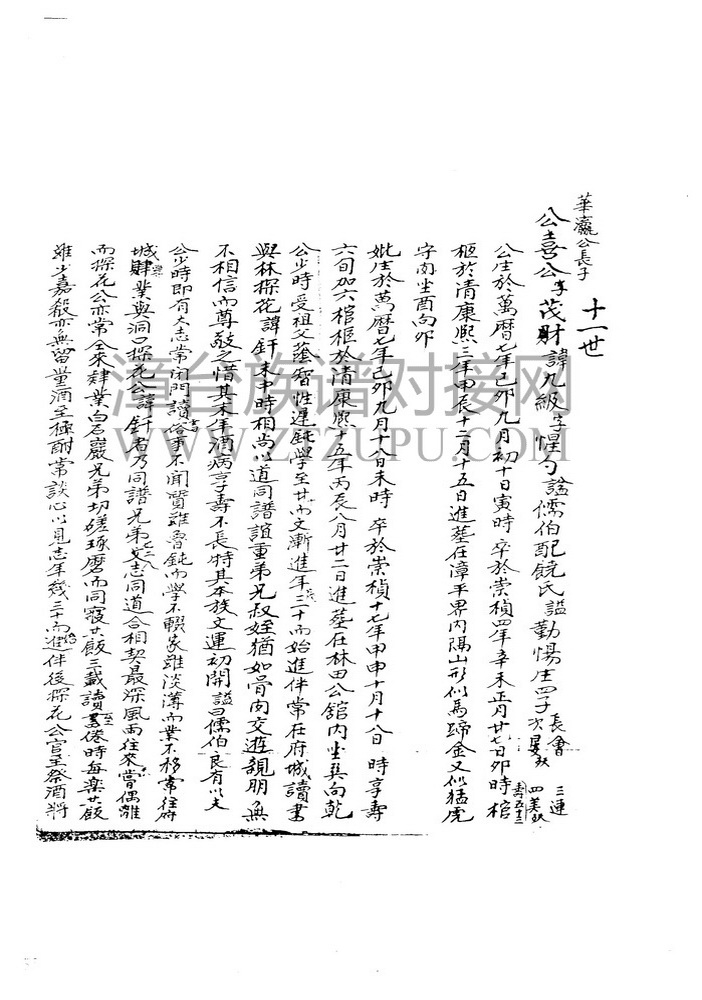 十一世
華瀛公長子
公喜公字茂財諱九級字惺勺諡儒伯配饒氏諡勤惕生四子長會 次晏 三連 四美 壽五十三
公生於萬曆七年己卯九月初十日寅時卒於崇禎四年辛未正月廿七日卯時棺
柩於清康熙三年甲辰十二月十五日進葬在漳平界內隔山形似馬蹄金又似猛虎
字南坐酉向卯
妣生於萬曆七年己卯九月十八日未時卒於崇禎十七年甲申十月十八日 時享壽
六旬加六棺柩於清康熙十五年丙辰八月廿二日進葬在林田公館內坐巽向乾
公少時受祖父蔭習性遲鈍學至廿而文漸進年三十而始進伴常在府城讀書
與林探花諱釬未中時相尚以道同譜誼重弟兄叔姪猶如骨肉交遊親朋無
不相信而尊敬之惜其末年酒病亨壽不長特其本族文運初開諡曰儒伯良有以夫
公少時即有大志常閉門讀書俗事不聞質雖魯鈍而學不輟家雖淡薄而業不移常往府
城肄業與洞口探花公諱釬者乃同譜兄弟志同道合相契最深風雨往來嘗偶離
而探花公亦常全來肄業白石巖兄弟切磋琢磨而同寢共飯三載讀書至倦時每樂共飯
雖少嘉殽亦無留量酒至極酣常談心以見志年幾三十而進伴後探花公官至祭酒將